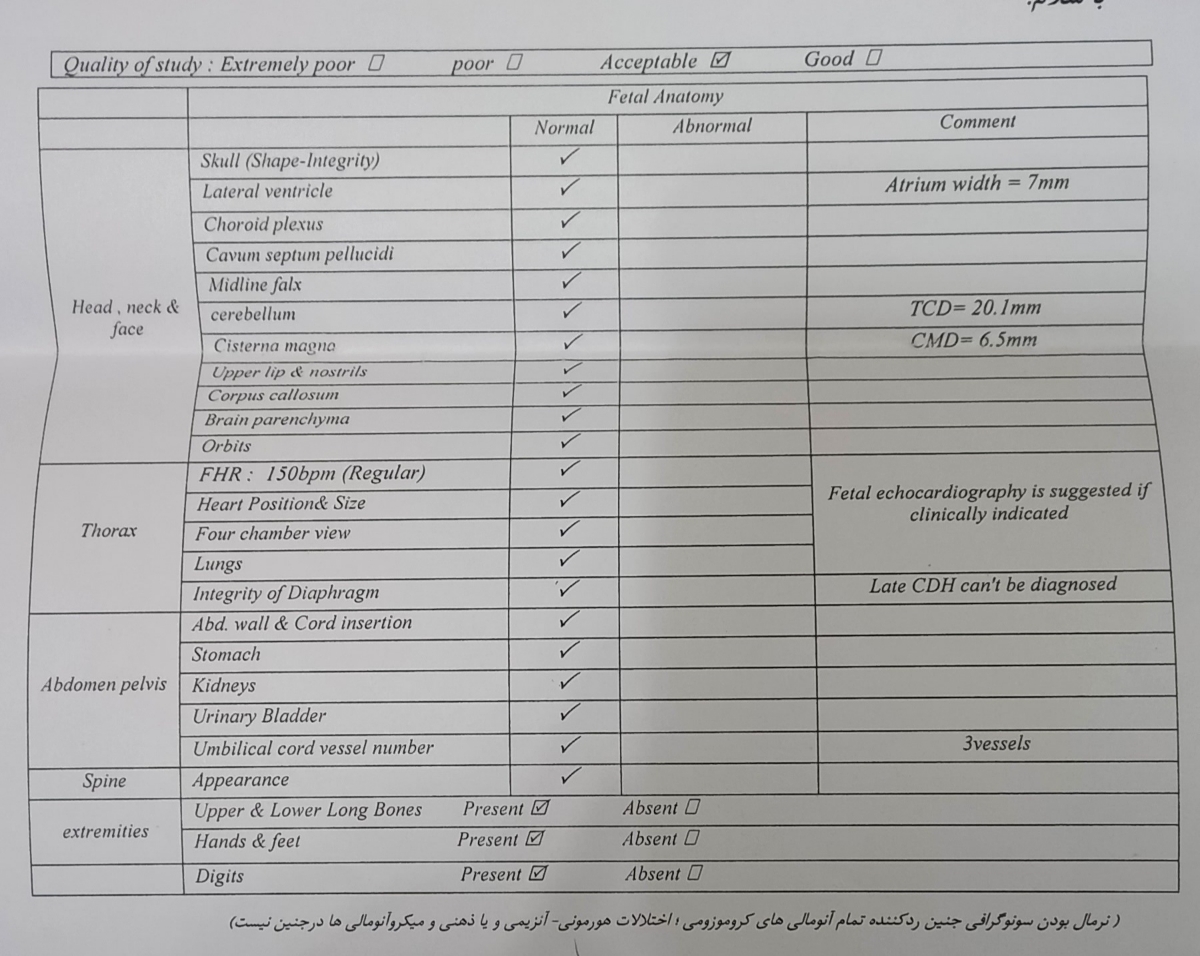 با سلام:
Quality of study : Extremely poor ☐ poor ☐ Acceptable ☑ Good ☐
Fetal Anatomy
Normal Abnormal Comment
Head , neck & face
Skull (Shape-Integrity) ✓
Lateral ventricle ✓ Atrium width = 7mm
Choroid plexus ✓
Cavum septum pellucidi ✓
Midline falx ✓
cerebellum ✓ TCD= 20.1mm
Cisterna magna ✓ CMD= 6.5mm
Upper lip & nostrils ✓
Corpus callosum ✓
Brain parenchyma ✓
Orbits ✓
Thorax
FHR : 150bpm (Regular) ✓
Heart Position& Size ✓
Fetal echocardiography is suggested if
clinically indicated
Four chamber view ✓
Lungs ✓
Integrity of Diaphragm ✓ Late CDH can't be diagnosed
Abdomen pelvis
Abd. wall & Cord insertion ✓
Stomach ✓
Kidneys ✓
Urinary Bladder ✓
Umbilical cord vessel number ✓ 3vessels
Spine Appearance ✓
extremities
Upper & Lower Long Bones Present ☑ Absent ☐
Hands & feet Present ☑ Absent ☐
Digits Present ☑ Absent ☐
( نرمال بودن سونوگرافی جنین ردکننده تمام آنومالی های کروموزومی ؛ اختلالات هورمونی- آنزیمی و یا ذهنی و میکروآنومالی ها درجنین نیست)